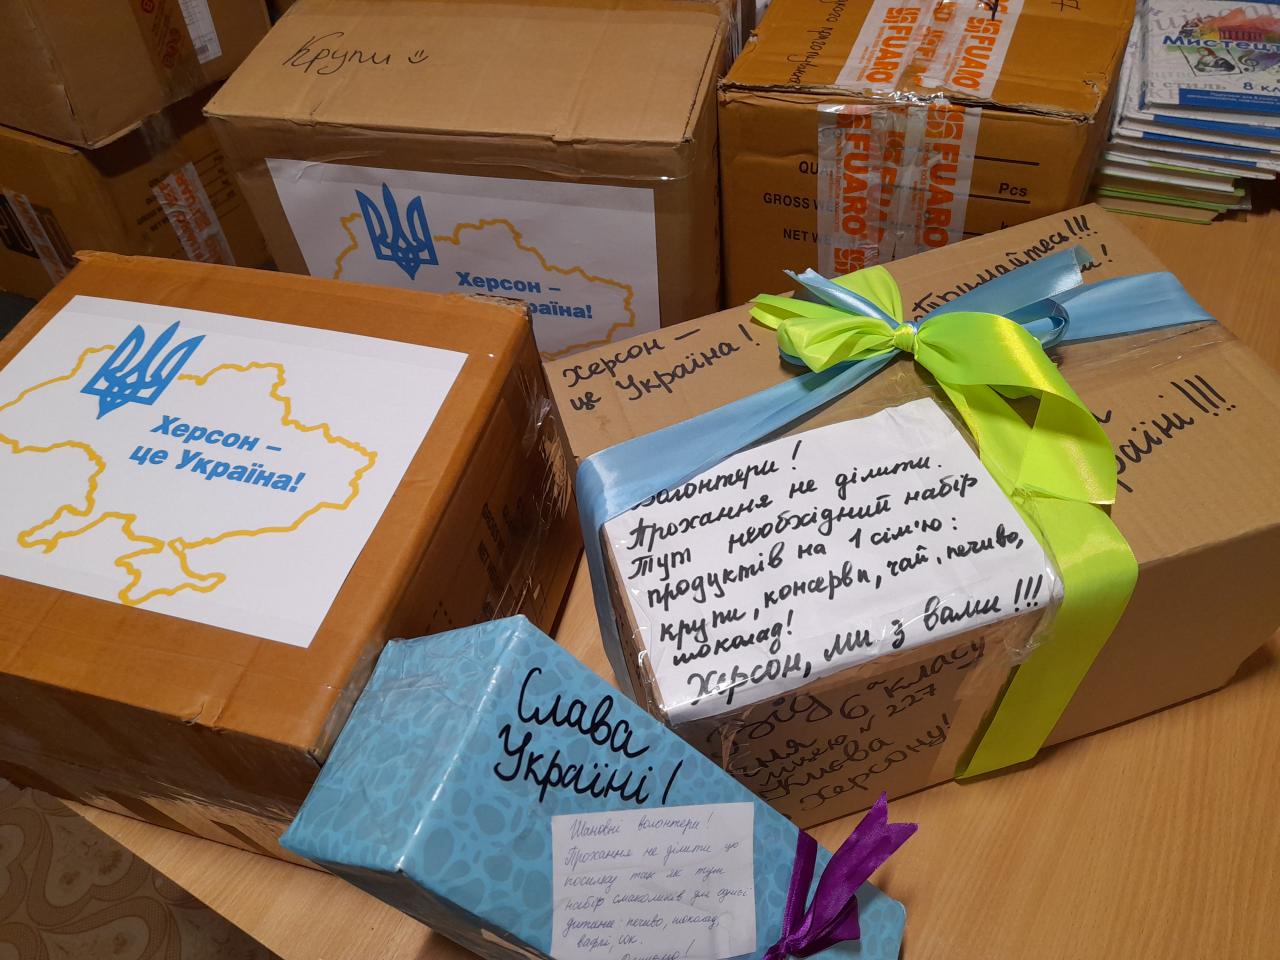 Крупи
FUARO
FUARO
Pcs
GROSS
NET
Мистец
8 КЛ
Херсон –
це Україна!
Херсон –
раїна!
Херсон –
це Україна!
Тримайтесь!!!
раїні!!!
Волонтери!
Прохання не ділити.
Тут необхідний набір
продуктів на 1 сім'ю:
крупи, консерви, чай, печиво,
шоколад!
Херсон, ми з вами!!!
Від 6 а класу
ліцею № 227
Києва
Херсону!
Слава
Україні!
Шановні волонтери!
Прохання не ділити цю
посилку так як тут
набір смаколиків для однієї
дитини: печиво, шоколад,
вафлі, сік.